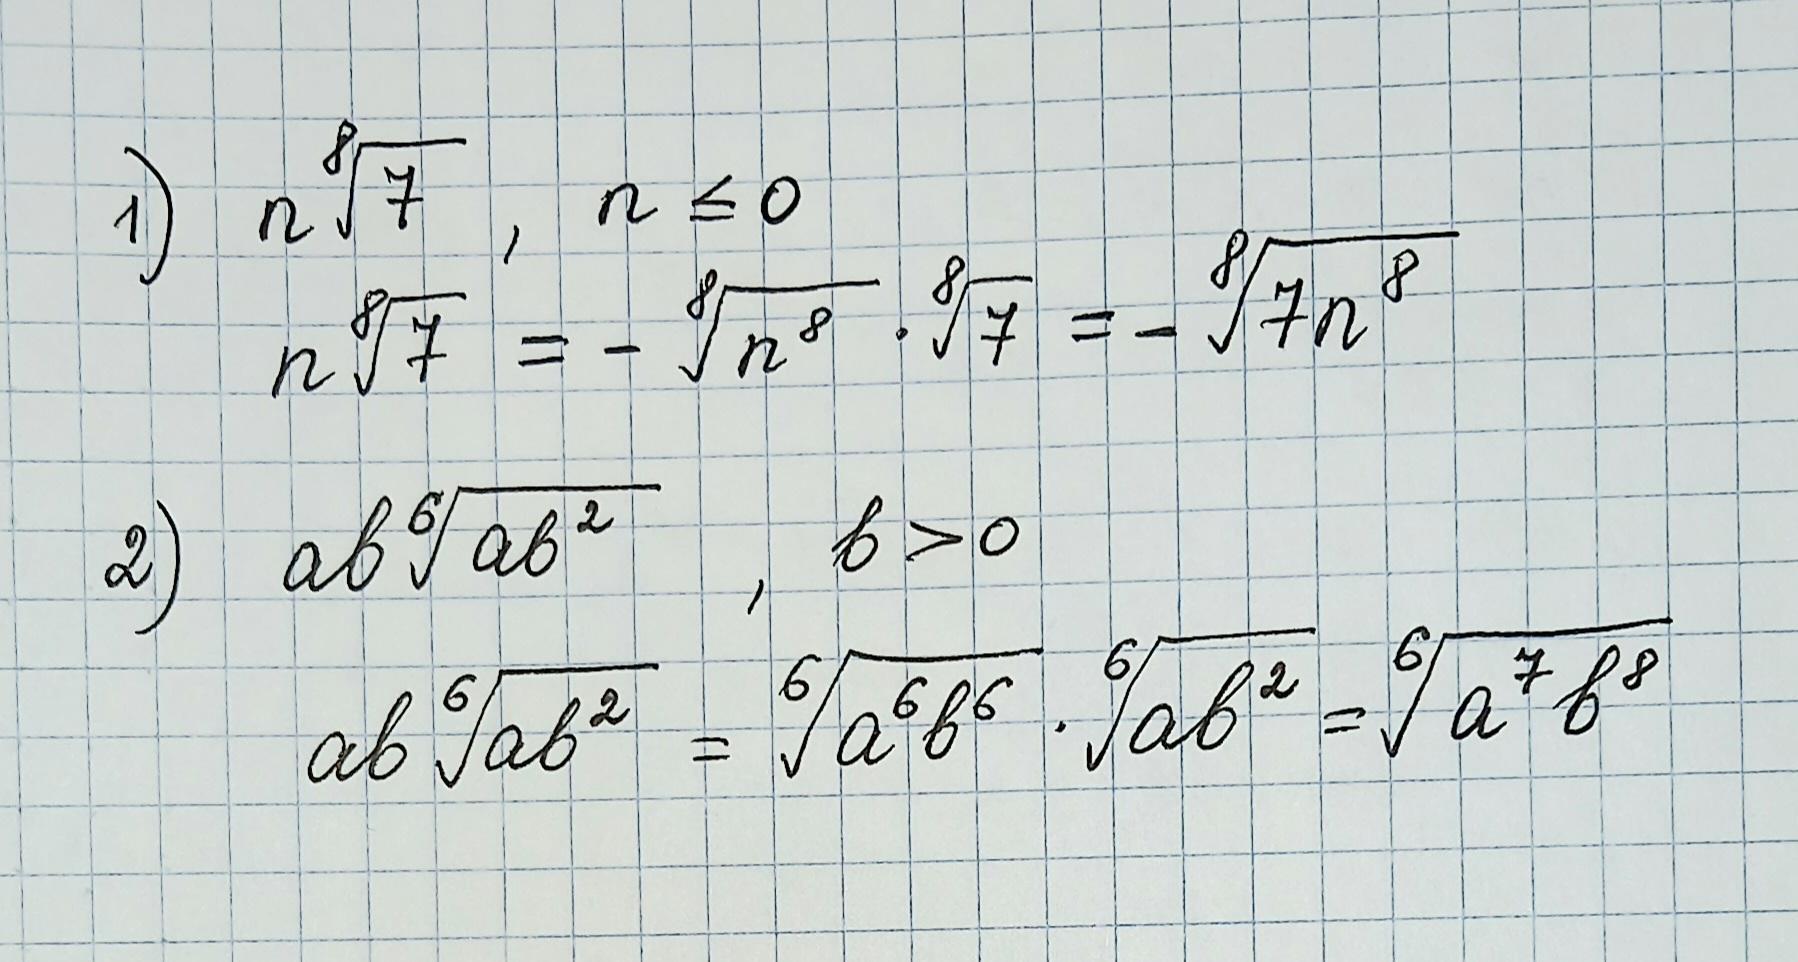 1) n⁸√7 , n ≤ 0
n⁸√7 = - ⁸√n⁸ · ⁸√7 = - ⁸√7n⁸
2) ab⁶√ab² , b > 0
ab⁶√ab² = ⁶√a⁶b⁶ · ⁶√ab² = ⁶√a⁷b⁸